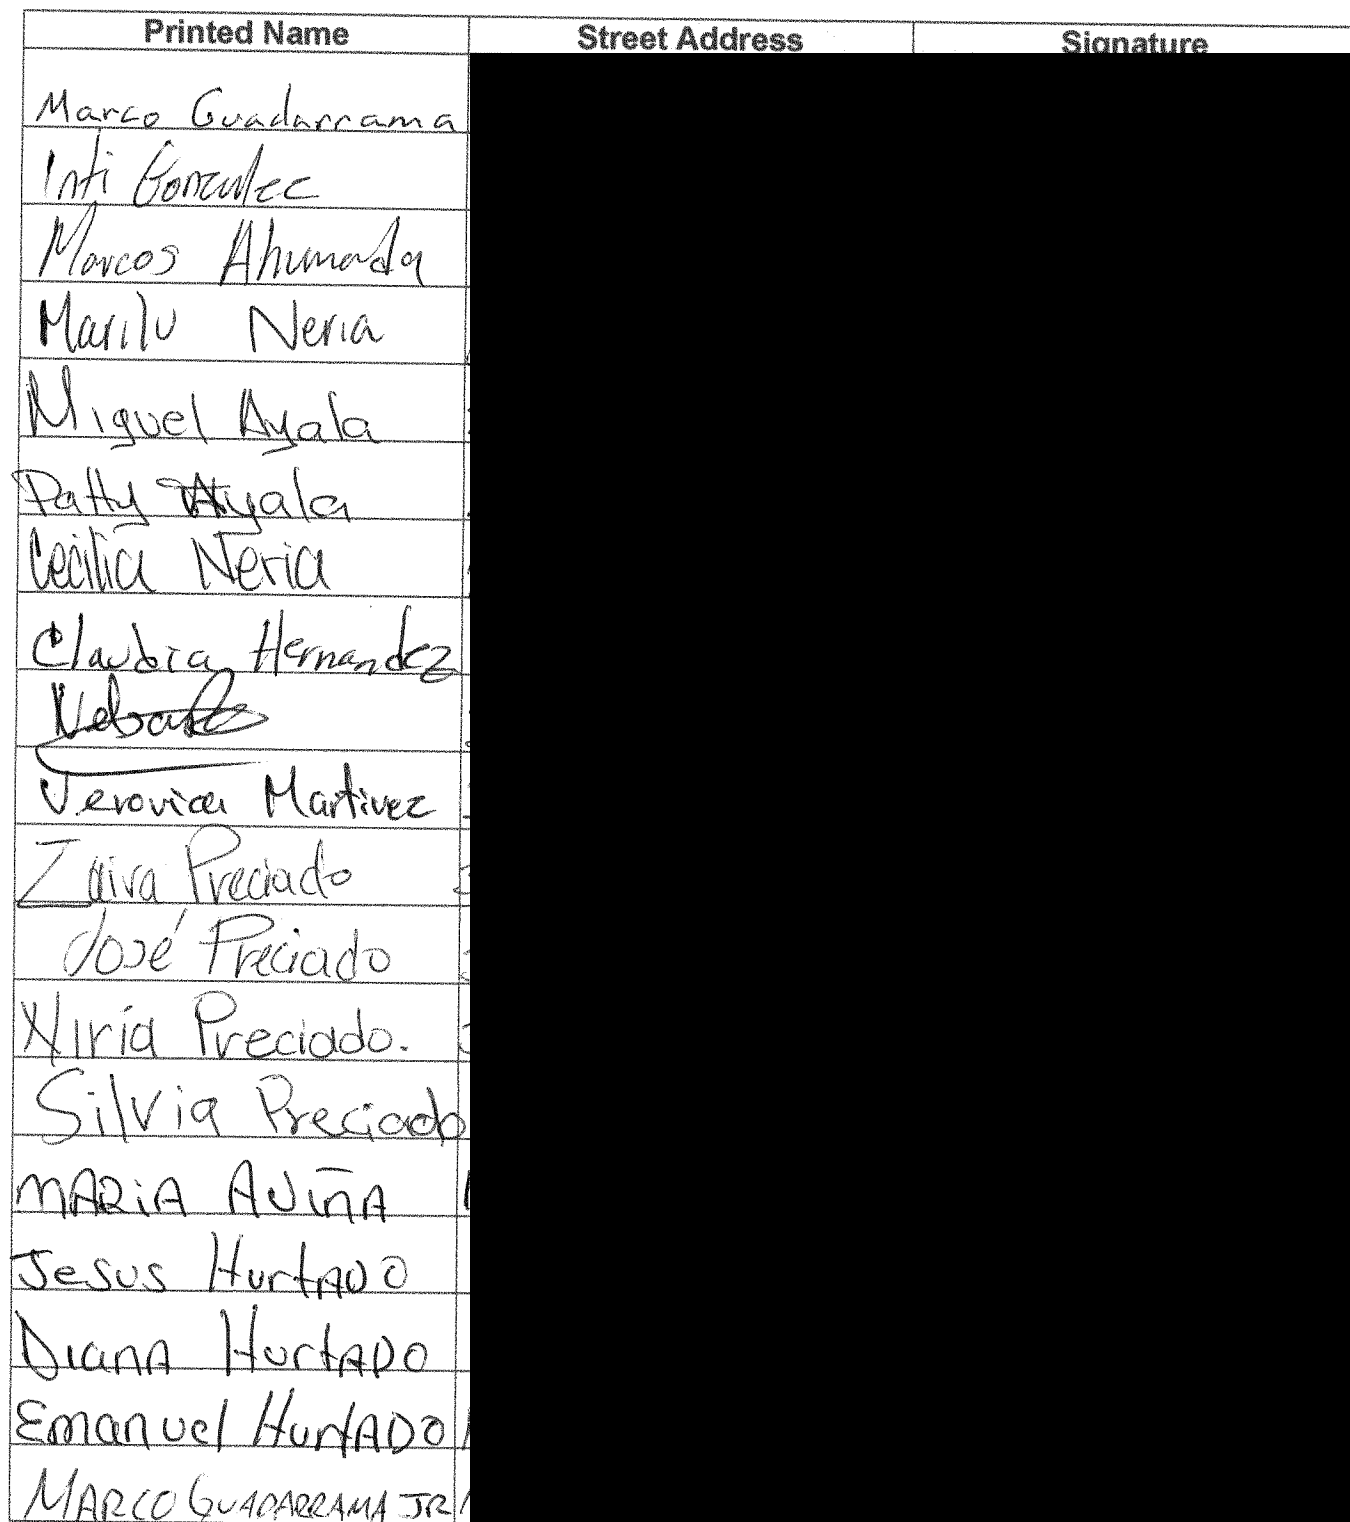 Printed Name Street Address Signature
Marco Guadarrama
Inti Gonzalez
Marcos Ahumada
Marilu Neria
Miguel Ayala
Patty Ayala
Cecilia Neria
Claudia Hernandez
Veronica Martinez
Zaira Preciado
José Preciado
Niria Preciado.
Silvia Preciado
MARiA AViñA
Jesus HurtADO
DianA HurtADO
Emanuel HurtADO
MARCO GUADARRAMA JR